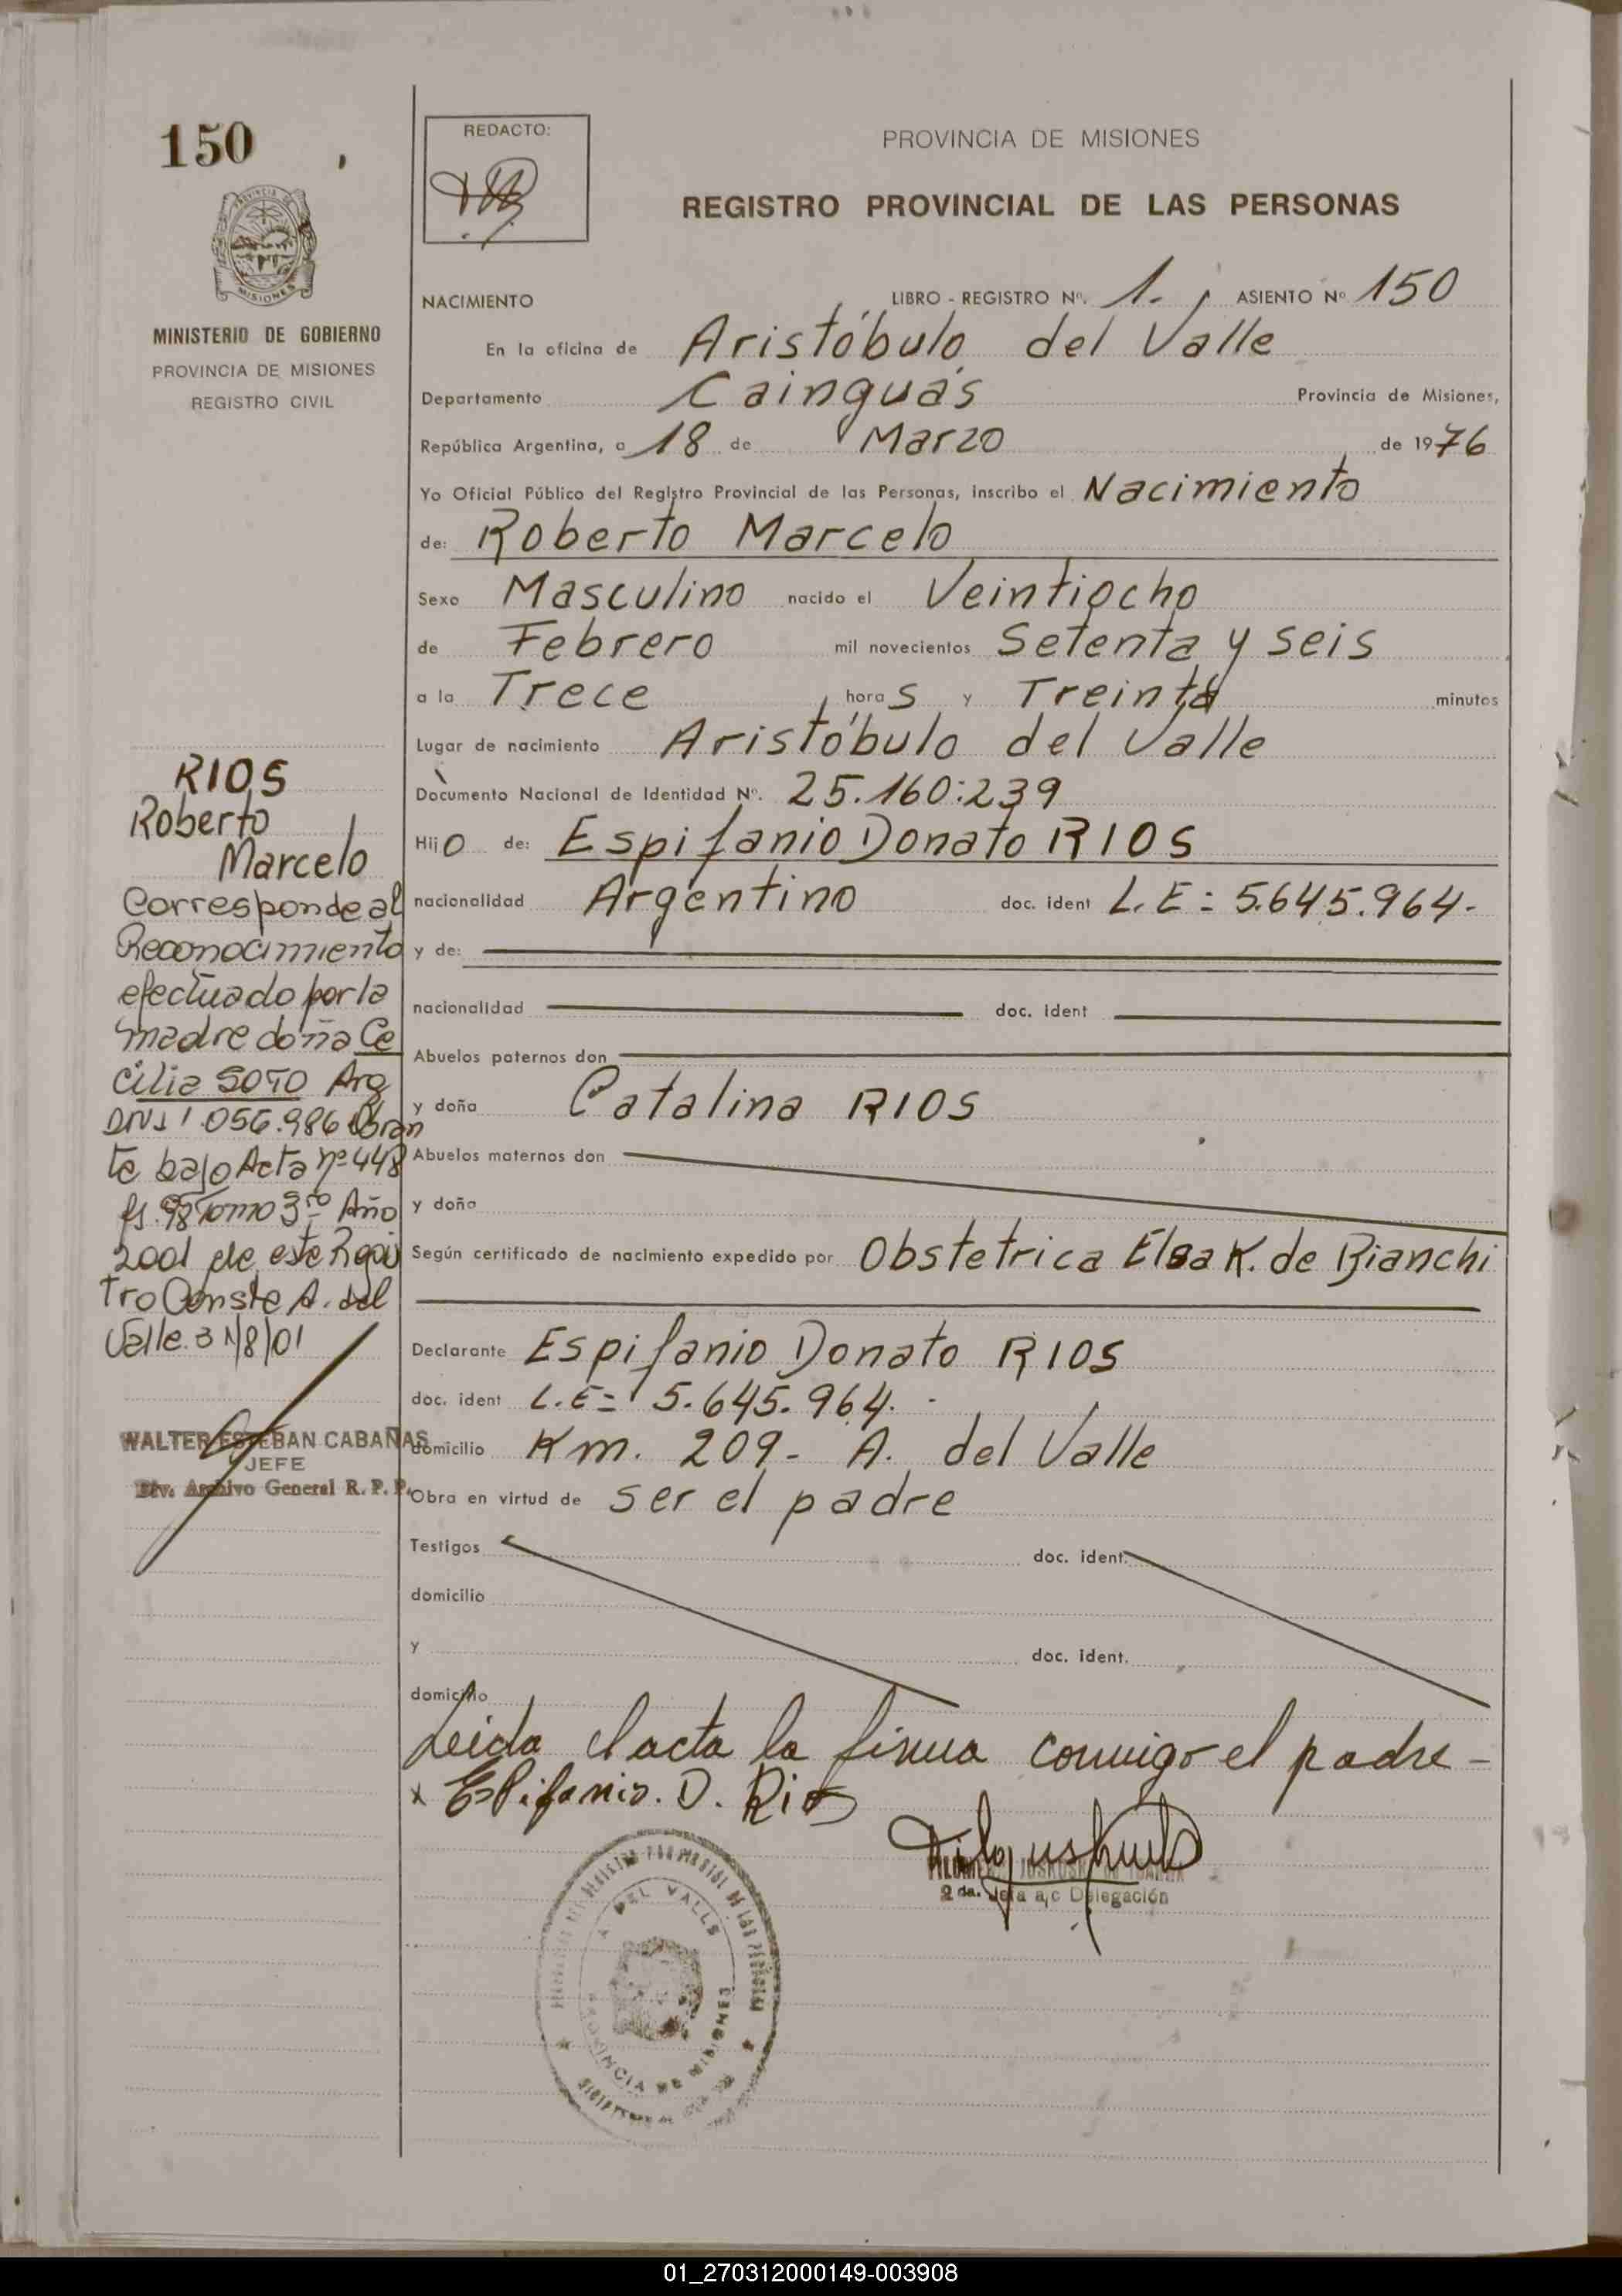 150
REDACTO:
PROVINCIA DE MISIONES
REGISTRO PROVINCIAL DE LAS PERSONAS
PROVINCIA DE
MISIONES
MINISTERIO DE GOBIERNO
PROVINCIA DE MISIONES
REGISTRO CIVIL
NACIMIENTO LIBRO - REGISTRO Nº. 1. ASIENTO Nº 150
En la oficina de Aristóbulo del Valle
Departamento Cainguás Provincia de Misiones,
República Argentina, a 18 de Marzo de 1976
Yo Oficial Público del Registro Provincial de las Personas, inscribo el Nacimiento
de: Roberto Marcelo
Sexo Masculino nacido el Veintiocho
de Febrero mil novecientos Setenta y seis
a la Trece horas y Treinta minutos
Lugar de nacimiento Aristóbulo del Valle
Documento Nacional de Identidad Nº. 25.160.239
Hijo de: Espifanio Donato RIOS
nacionalidad Argentino doc. ident L.E: 5.645.964-
y de:
nacionalidad doc. ident
Abuelos paternos don
y doña Catalina RIOS
Abuelos maternos don
y doña
Según certificado de nacimiento expedido por Obstetrica Elsa K. de Bianchi
Declarante Espifanio Donato RIOS
doc. ident L.E= 5.645.964.
domicilio Km. 209- A. del Valle
Obra en virtud de ser el padre
Testigos doc. ident.
domicilio
y doc. ident.
domicilio
Leida el acta la firma conmigo el padre-
x Espifanio. D. Rios
2da. Jefa a/c Delegación
A. DEL VALLE
PROVINCIA DE
RIOS
Roberto
Marcelo
Corresponde al
Reconocimiento
efectuado por la
madre doña Ce
cilia SOTO Arg
DNI 1.056.986 Obran
te bajo Acta nº 448
fs. 98 Tomo 3ro Año
2001 de este Regis
tro Conste A. del
Valle. 31/8/01
WALTER ESTEBAN CABAÑAS
JEFE
Div. Archivo General R. P. P.
01_270312000149-003908